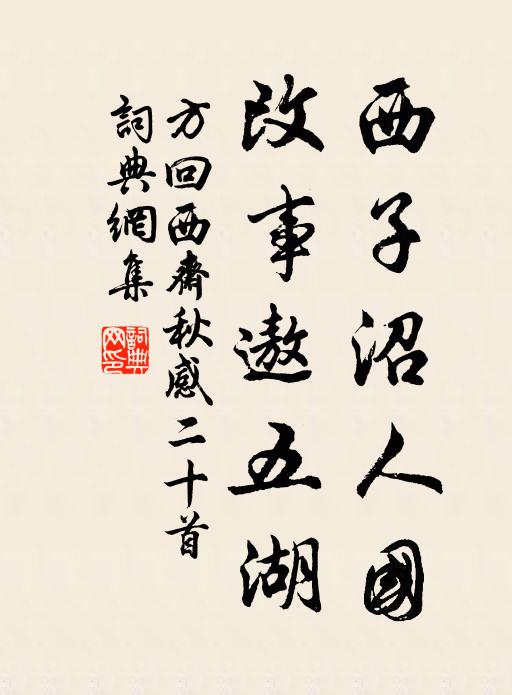 西子沼人國
改事遨五湖
方回西齋秋感二十首
詞典網集
詞典網印